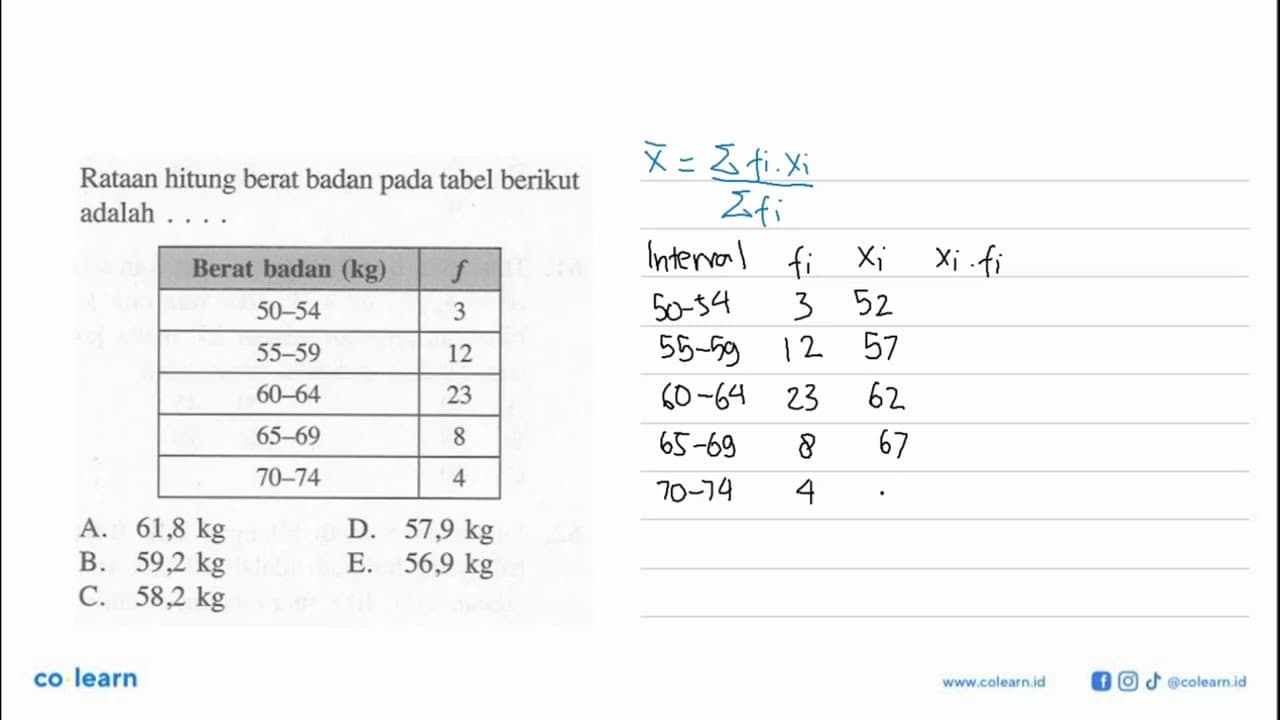 Rataan hitung berat badan pada tabel berikut
adalah . . . .
Berat badan (kg) f
50–54 3
55–59 12
60–64 23
65–69 8
70–74 4
A. 61,8 kg D. 57,9 kg
B. 59,2 kg E. 56,9 kg
C. 58,2 kg
x̄ = Σ fi . xi
Σ fi
Interval fi xi xi . fi
50-54 3 52
55-59 12 57
60-64 23 62
65-69 8 67
70-74 4 .
co learn
www.colearn.id @colearn.id